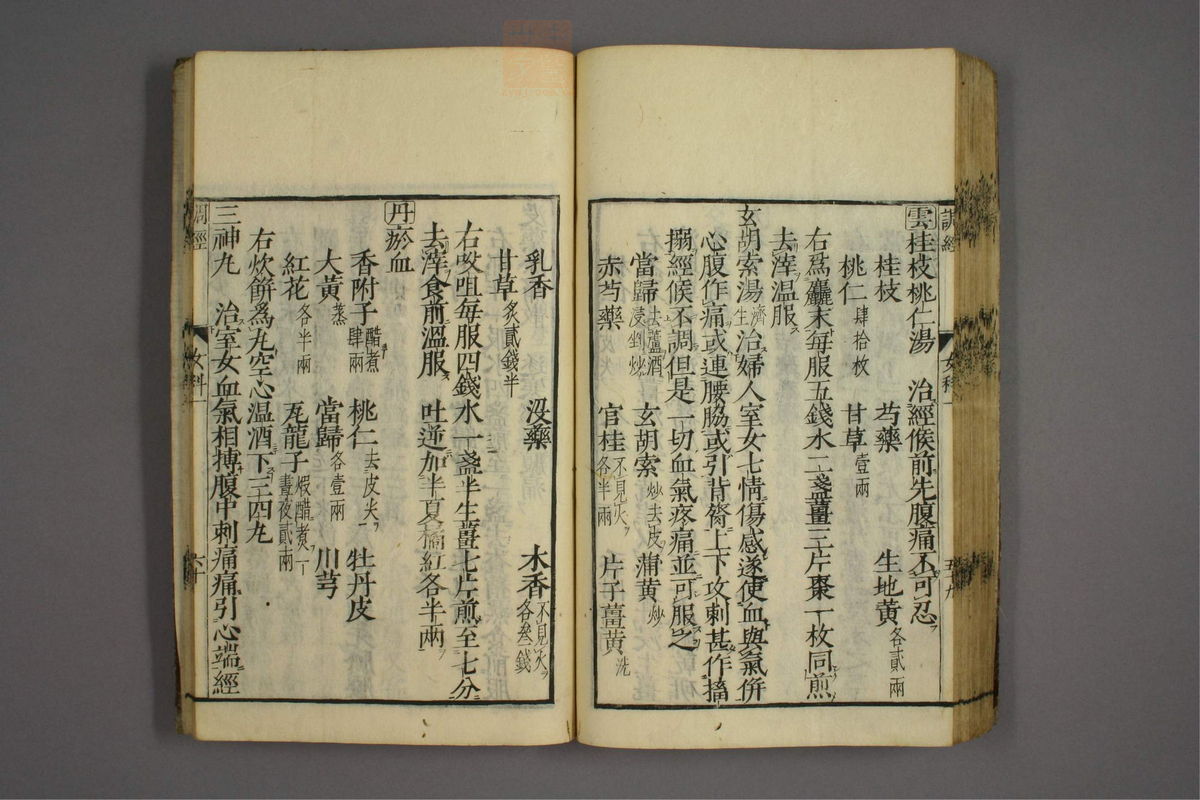 調經
女科一
五十九
雲桂枝桃仁湯　治經候前先腹痛不可忍
桂枝　芍藥　生地黃各貳兩
桃仁肆拾枚　甘草壹兩
右爲麤末每服五錢水二盞薑三片棗一枚同煎
去滓溫服
玄胡索湯濟生治婦人室女七情傷感遂使血與氣併
心腹作痛或連腰脇或引背膂上下攻刺甚作搐
搦經候不調但是一切血氣疼痛並可服之
當歸去蘆酒浸剉炒　玄胡索炒去皮　蒲黃炒
赤芍藥　官桂不見火各半兩　片子薑黃洗
乳香　沒藥　木香不見火各叁錢
甘草炙貳錢半
右㕮咀每服四錢水一盞半生薑七片煎至七分
去滓食前溫服　吐逆加半夏橘紅各半兩
丹瘀血
香附子醋煮肆兩　桃仁去皮尖　牡丹皮
大黃蒸　當歸各壹兩　川芎
紅花各半兩　瓦龍子煆醋煮一晝夜貳兩
右炊餅爲丸空心溫酒下三四丸
三神丸　治室女血氣相搏腹中刺痛痛引心端經
調經
女科一
六十